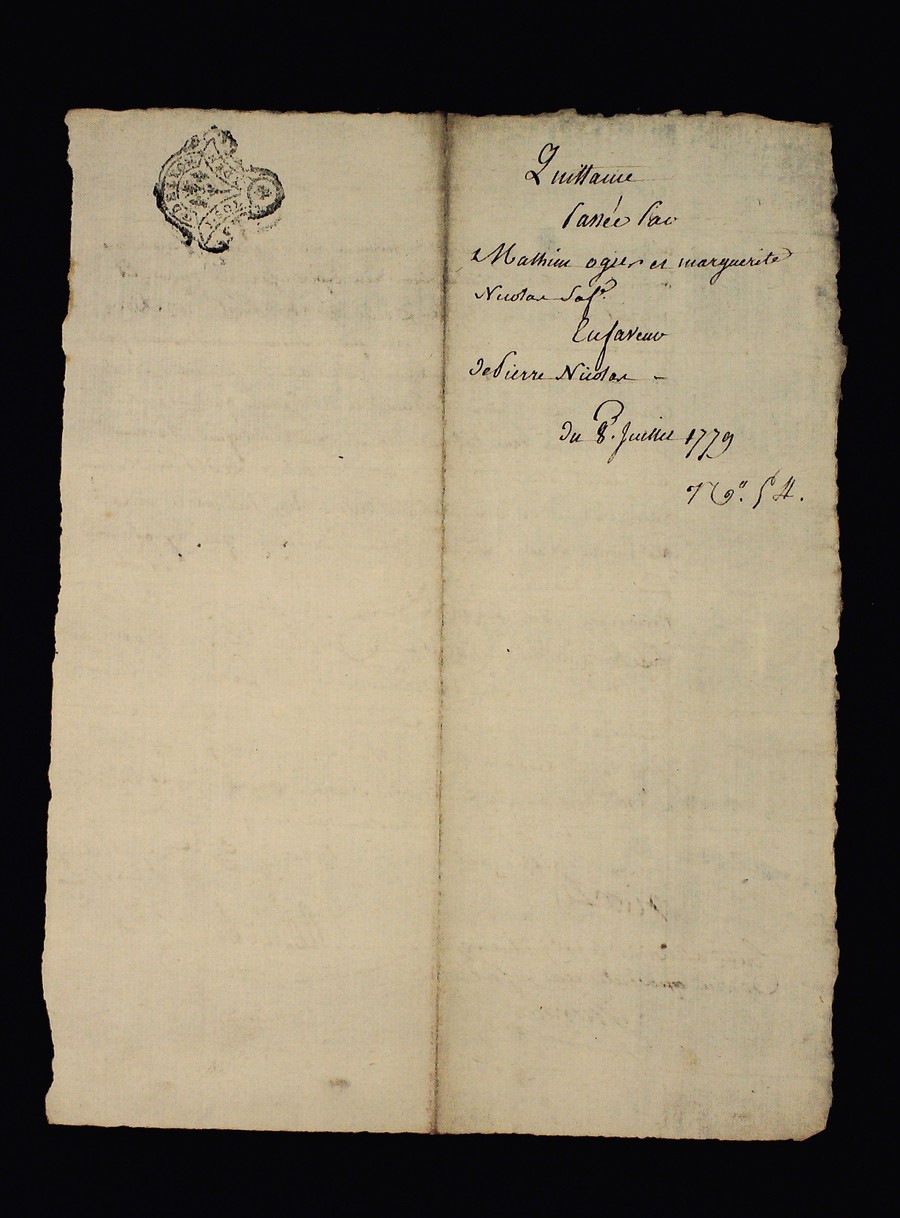 Quittance
Passée Par
Mathieu ogier et marguerite
Nicolas Sa f.e
En faveur
de Pierre Nicolas -
du 8. Juillet 1779